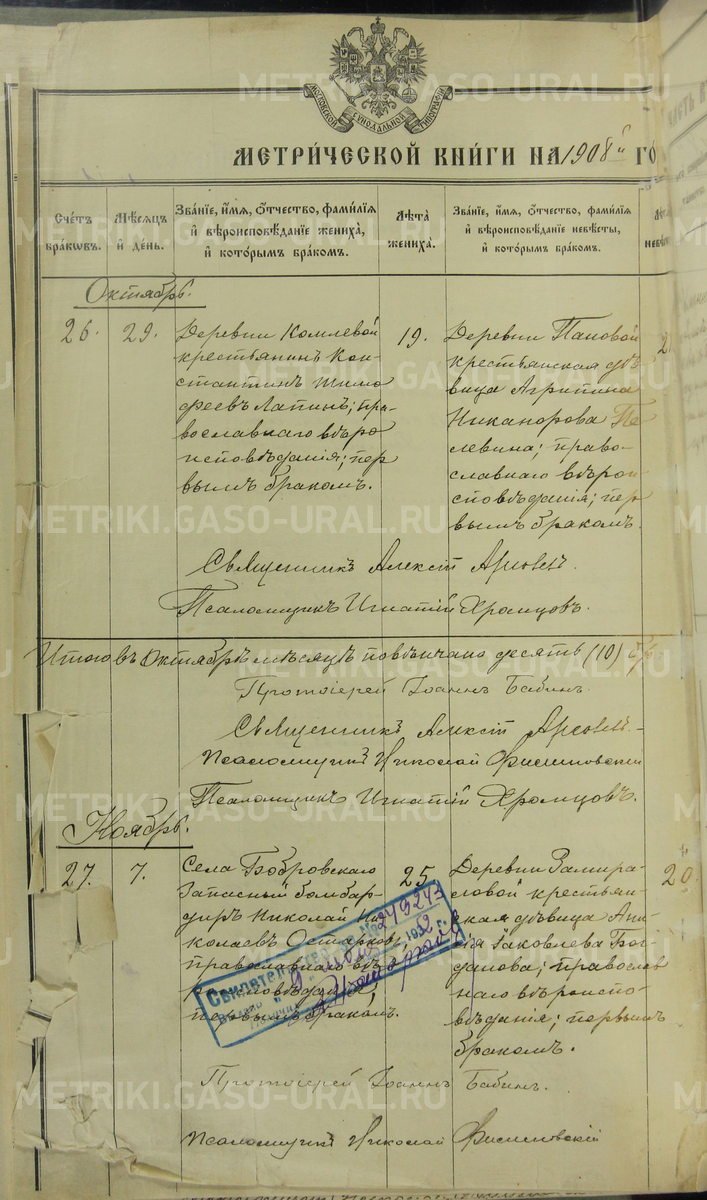 МОСКОВСКОЙ СИНОДАЛЬНОЙ ТИПОГРАФІИ
МЕТРИ́ЧЕСКОЙ КНИ́ГИ НА 1908й ГО
Сче́тъ бра́кѡвъ.
Мѣ́сяцъ и҆ де́нь.
Зва́нїе, и҆́мя, ѻ҆́тчество, фами́лїя
и҆ вѣроисповѣ́данїе жениха̀,
и҆ кото́рымъ бра́комъ.
Лѣ́та жениха̀.
Зва́нїе, и҆́мя, ѻ҆́тчество, фами́лїя
и҆ вѣроисповѣ́данїе невѣ́сты,
и҆ кото́рымъ бра́комъ.
Октябрь.
26.
29.
Деревни Комлевой
крестьянинъ Кон-
стантинъ Тимо
феевъ Лапинъ; пра-
вославнаго вѣро
исповѣданія; пер
вымъ бракомъ.
19.
Деревни Пановой
крестьянская дѣ-
вица Агрипина
Никанорова Пе
левина; право-
славнаго вѣрои-
сповѣданія; пер
вымъ бракомъ.
2
Священникъ Алексій
Псаломщикъ Игнатій Хромцовъ.
Итого въ Октябрѣ мѣсяцѣ повѣнчано десять (10)
Протоіерей Іоаннъ Бабинъ.
Священникъ Алексій
Псаломщикъ Николай
Псаломщикъ Игнатій Хромцовъ.
Ноябрь.
27.
7.
Села Бобровскаго
запасный бомбар-
диръ Николай Ни
колаевъ
православнаго вѣ
роисповѣданія;
первымъ бракомъ.
25
Деревни Замира-
ловой крестьян-
ская дѣвица Ани-
сія Іаковлева Бог
данова; православ
наго вѣроиспо-
вѣданія; первымъ
бракомъ.
20.
Свидетельство № 249243
Протоіерей Іоаннъ Бабинъ.
Псаломщикъ Николай
METRIKI.GASO-URAL.RU